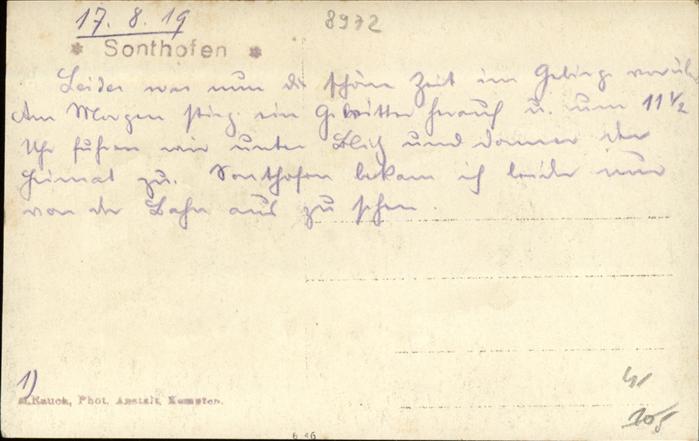 17. 8. 19
8972
* Sonthofen *
Leider war nun die schöne Zeit im Gebirge vorüb.
Am Morgen stieg ein Gewitter herauf u. um 11 1/2
Uhr fuhren wir unter Blitz und Donner der
Heimat zu. Sonthofen bekam ich leider nur
von der Bahn aus zu sehen.
1)
Rauch, Phot. Anstalt, Kempten.